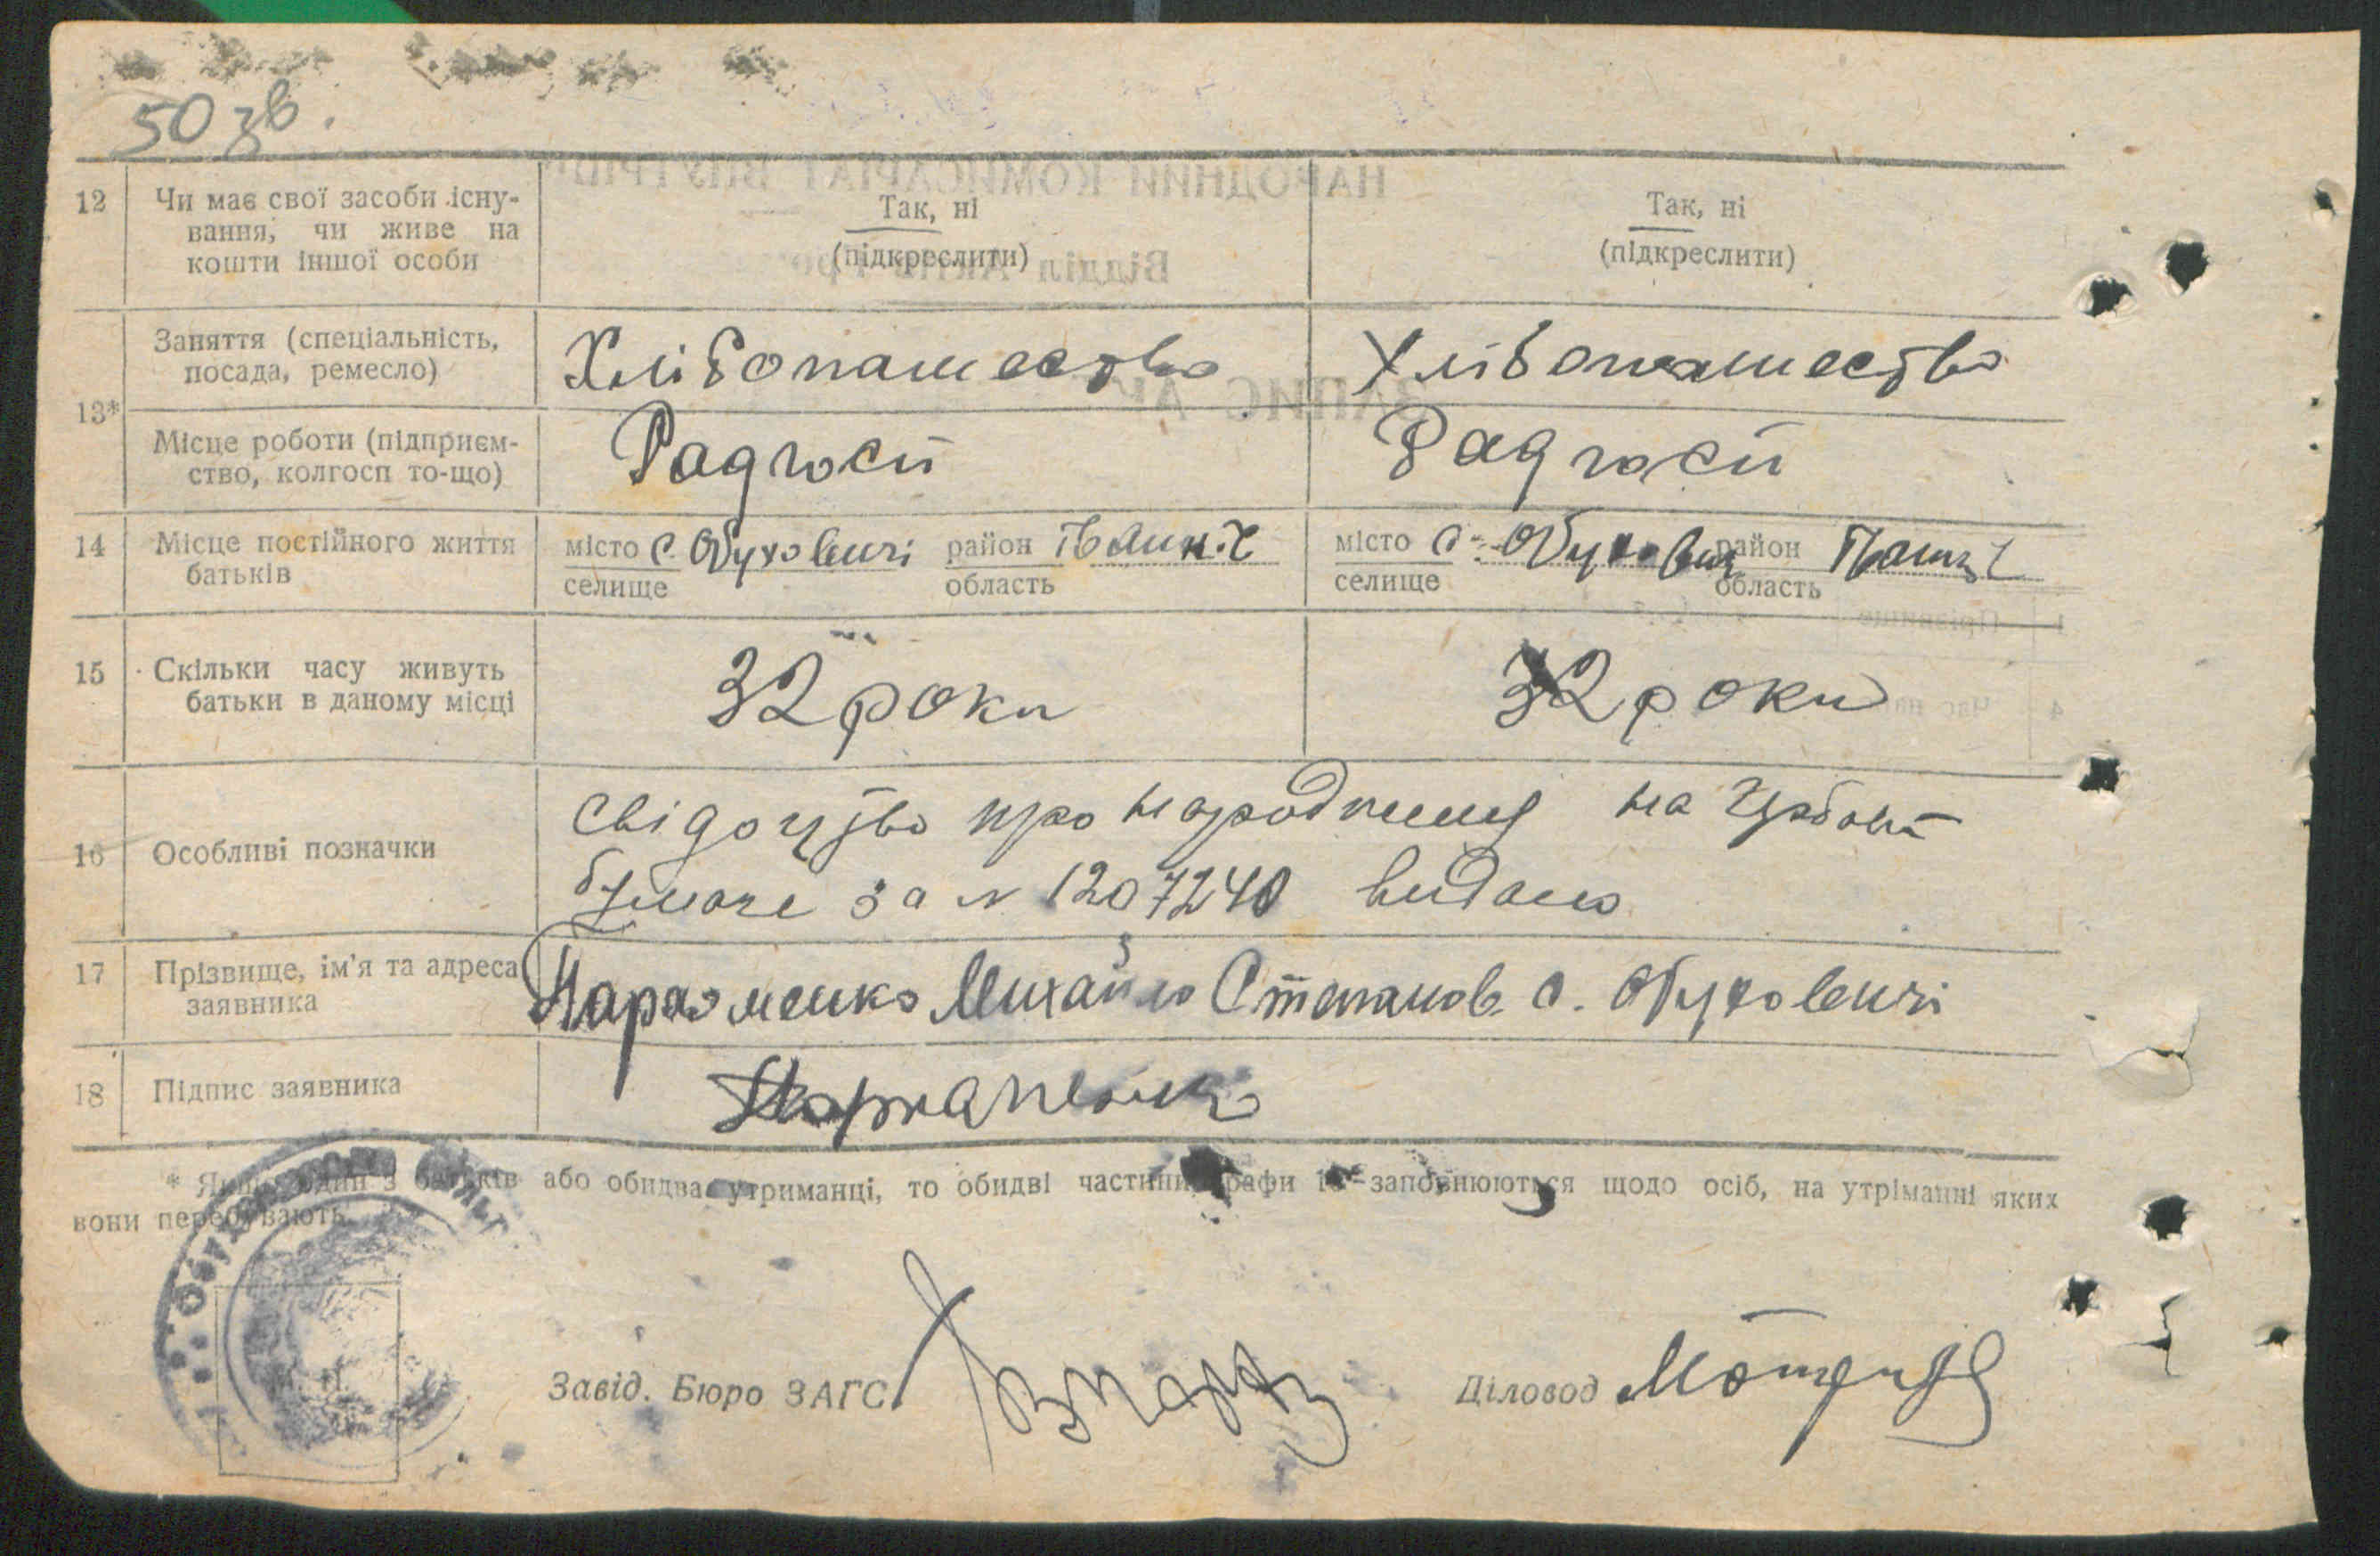 50 зв.
12 Чи має свої засоби існу- Так, ні Так, ні
вання, чи живе на (підкреслити) (підкреслити)
кошти іншої особи
13* Заняття (спеціальність, Хлібопашество Хлібопашество
посада, ремесло)
Місце роботи (підприєм- Радгосп Радгосп
ство, колгосп то-що)
14 Місце постійного життя місто с. Обуховичі район місто с. Обуховичі район
батьків селище область селище область
15 Скільки часу живуть 32 роки 32 роки
батьки в даному місці
16 Особливі позначки Свідоцтво про народження на
бумаге за № 1207240 видано
17 Прізвище, ім'я та адреса Михайло Степанов. с. Обуховичі
заявника
18 Підпис заявника
* Якщо один з батьків або обидва утриманці, то обидві частини графи 13 заповнюються щодо осіб, на утріманні яких
вони перебувають.
Завід. Бюро ЗАГС Діловод